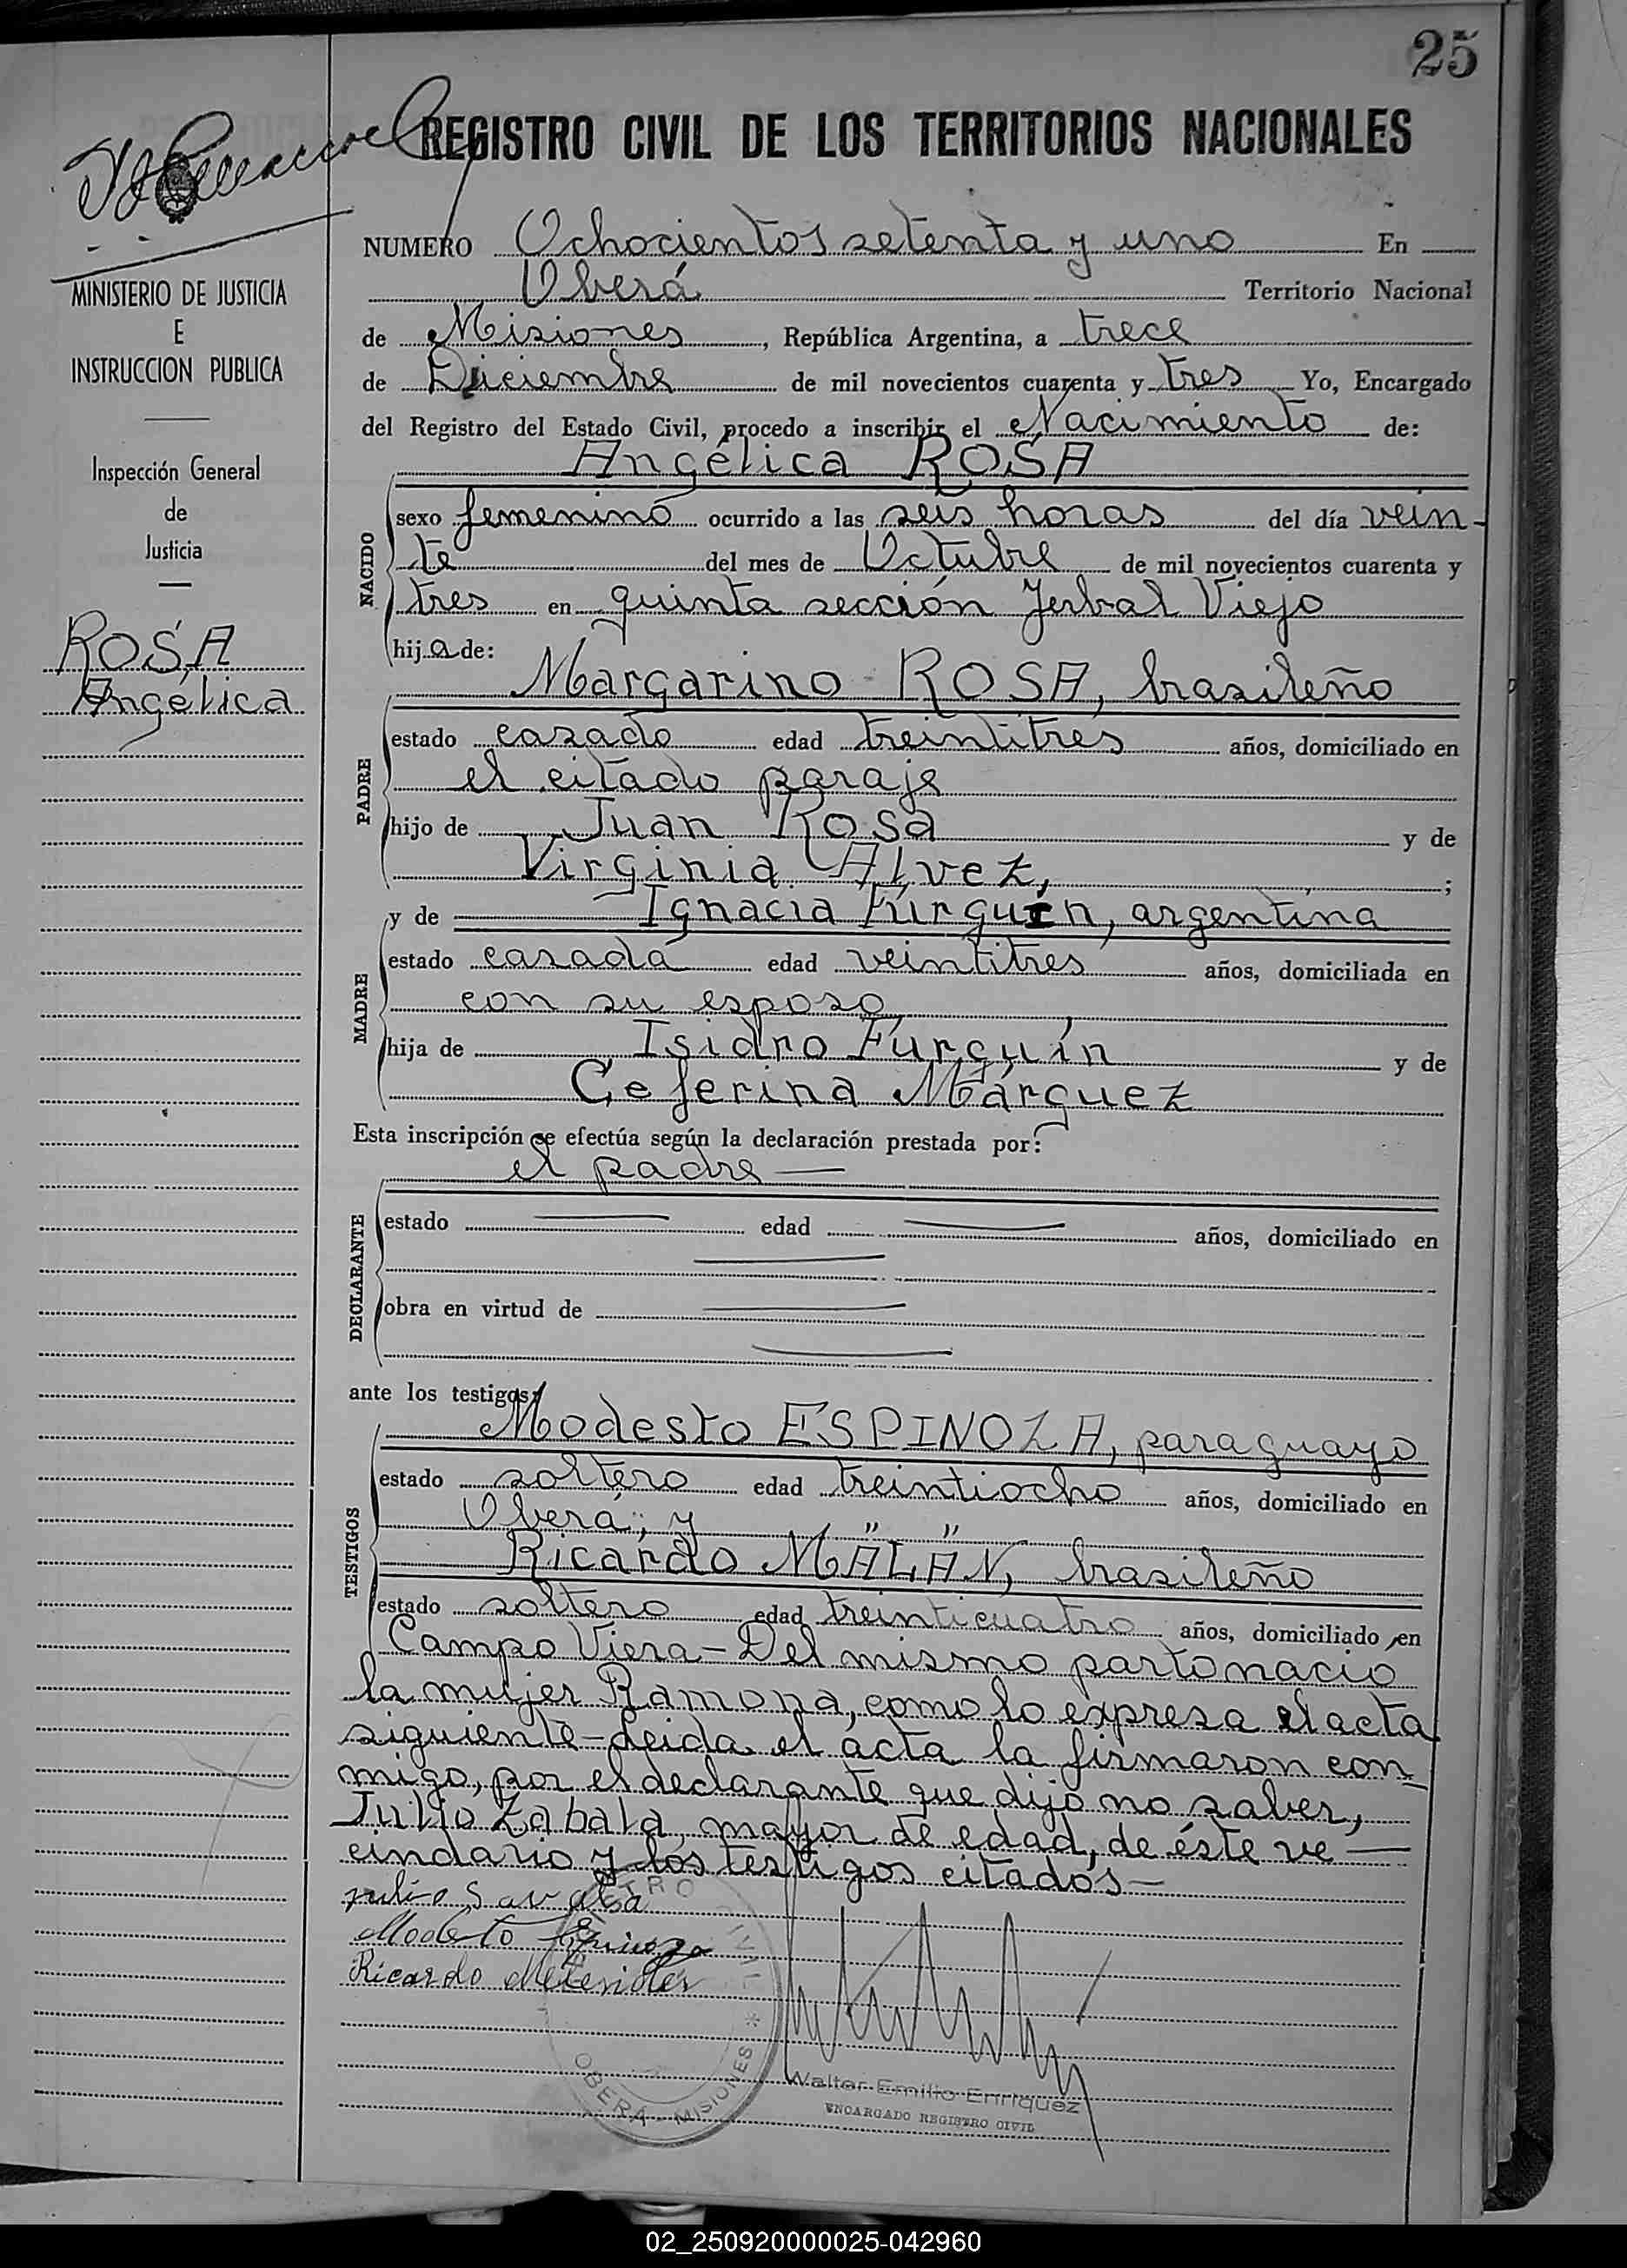 25
REGISTRO CIVIL DE LOS TERRITORIOS NACIONALES
MINISTERIO DE JUSTICIA
E
INSTRUCCION PUBLICA
Inspección General
de
Justicia
ROSA
Angélica
NUMERO Ochocientos setenta y uno En
Oberá Territorio Nacional
de Misiones, República Argentina, a trece
de Diciembre de mil novecientos cuarenta y tres Yo, Encargado
del Registro del Estado Civil, procedo a inscribir el Nacimiento de:
Angélica ROSA
NACIDO
sexo femenino ocurrido a las seis horas del día vein-
te del mes de Octubre de mil novecientos cuarenta y
tres en quinta sección Yerbal Viejo
hija de:
Margarino ROSA, brasileño
PADRE
estado casado edad treintitres años, domiciliado en
el citado paraje
hijo de Juan Rosa y de
Virginia Alvez, ;
y de Ignacia Furquín, argentina
MADRE
estado casada edad veintitres años, domiciliada en
con su esposo
hija de Isidro Furquín y de
Ceferina Márquez
Esta inscripción se efectúa según la declaración prestada por:
el padre —
DECLARANTE
estado — edad — años, domiciliado en
—
obra en virtud de —
—
ante los testigos:
Modesto ESPINOZA, paraguayo
TESTIGOS
estado soltero edad treintiocho años, domiciliado en
Oberá; y
Ricardo MÄLÄN, brasileño
estado soltero edad treinticuatro años, domiciliado en
Campo Viera - Del mismo parto nació
la mujer Ramona, como lo expresa el acta
siguiente - Leida el acta la firmaron con-
migo, por el declarante que dijo no saber,
Julio Zabala, mayor de edad, de éste ve—
cindario y los testigos citados —
Modesto Espinoza
Ricardo
REGISTRO CIVIL * OBERA - MISIONES *
Walter Emilio Enriquez
ENCARGADO REGISTRO CIVIL
02_250920000025-042960